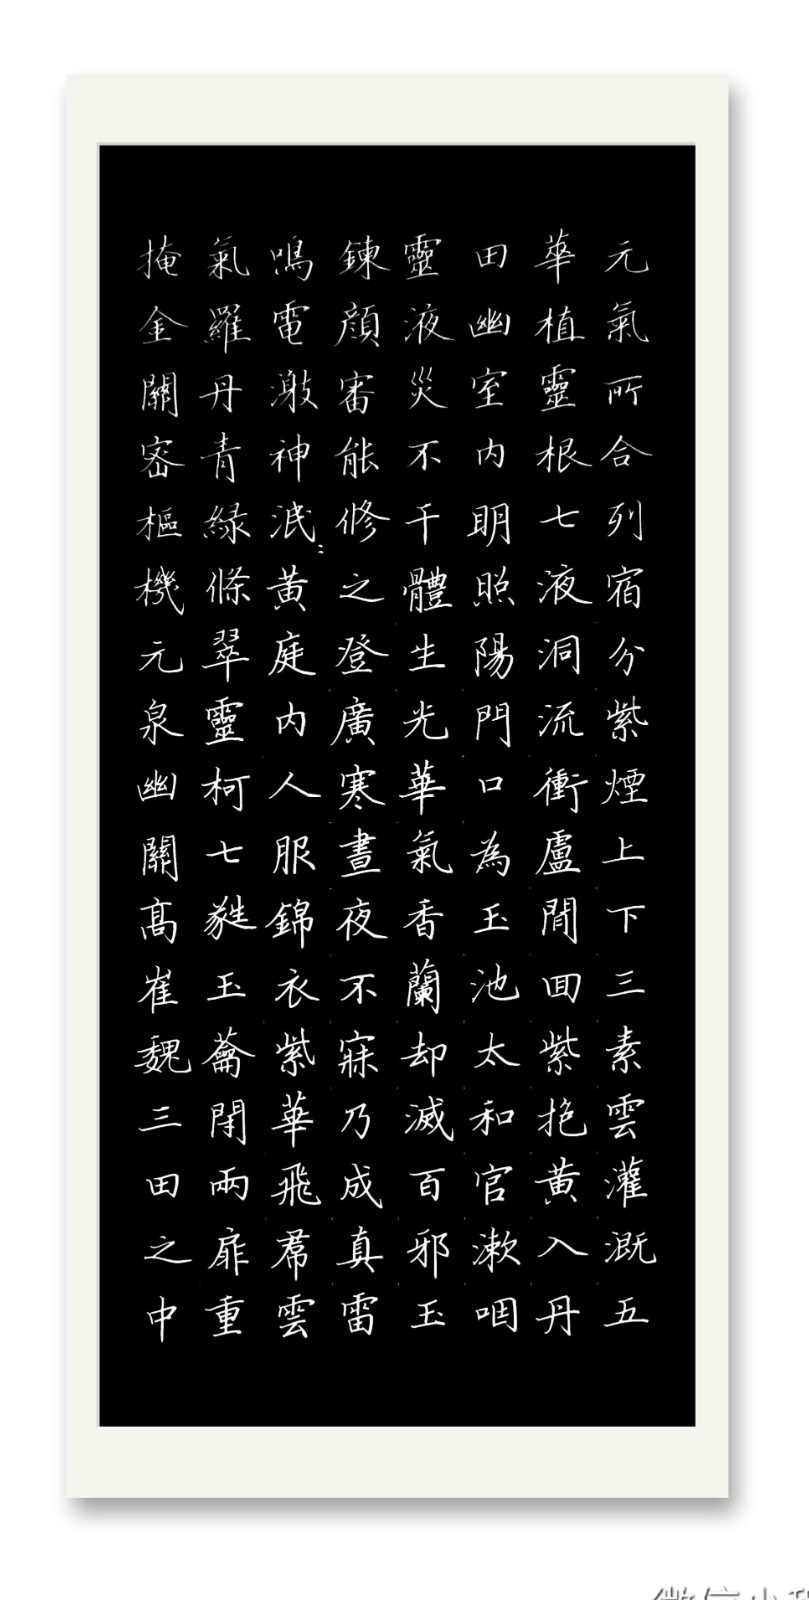 元氣所合列宿分紫煙上下三素雲灌溉五
華植靈根七液洞流衝廬間回紫抱黃入丹
田幽室内明照陽門口為玉池太和官漱咽
靈液災不干體生光華氣香蘭却滅百邪玉
鍊顔審能修之登廣寒晝夜不寐乃成真雷
鳴電激神泯黃庭内人服錦衣紫華飛帬雲
氣羅丹青緑條翠靈柯七蕤玉籥閉兩扉重
掩金關密樞機元泉幽關髙崔魏三田之中
微信小程